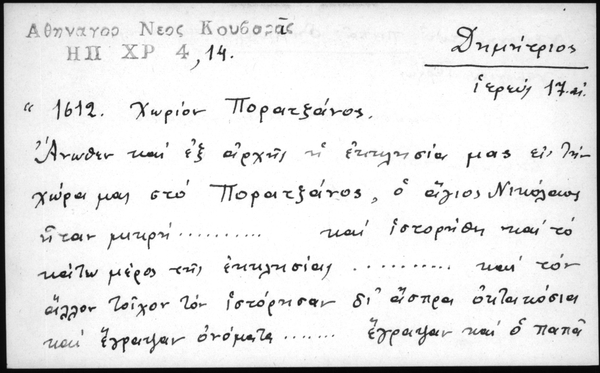 Αθηναγορ Νεος Κουβαρᾶς
ΗΠ ΧΡ 4, 14.
Δημήτριος
ἱερεύς 17 αἰ.
“ 1612. Χωρίον Πορατζάνος.
Ἄνωθεν καί ἐξ ἀρχῆς ἡ ἐκκλησία μας εἰς τήν
χώρα μας στό Πορατζάνος, ὁ ἅγιος Νικόλαος
ἦταν μικρή .......... καί ἱστορήθη καί τό
κάτω μέρος τῆς ἐκκλησίας .......... καί τόν
ἄλλον τοῖχον τόν ἱστόρησαν δι' ἄσπρα ὀκτακόσια
καί ἔγραψαν ὀνόματα ....... ἔγραψαν καί ὁ παπᾶ